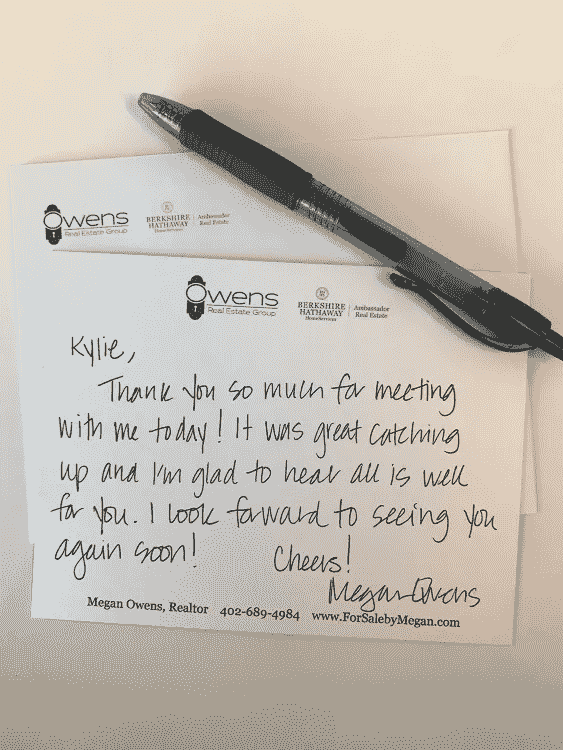 Owens
Real Estate Group
BERKSHIRE
HATHAWAY
HomeServices
Ambassador
Real Estate
Owens
Real Estate Group
BERKSHIRE
HATHAWAY
HomeServices
Ambassador
Real Estate
Kylie,
Thank you so much for meeting
with me today! It was great catching
up and I'm glad to hear all is well
for you. I look forward to seeing you
again soon! Cheers!
Megan Owens
Megan Owens, Realtor 402-689-4984 www.ForSalebyMegan.com